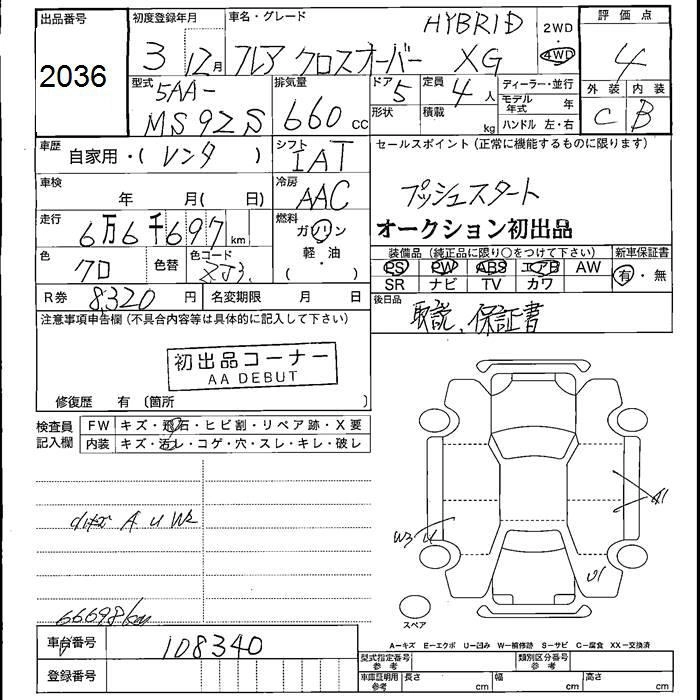 出品番号
2036
初度登録年月
3 12月
車名・グレード
HYBRID
フレア クロスオーバー XG
2WD
・
4WD
評価点
4
外装 内装
C B
型式
5AA-
MS92S
排気量
660 cc
ドア 5
形状
定員 4 人
積載 kg
ディーラー・並行
モデル年式 年
ハンドル 左・右
車歴
自家用・( レンタ )
シフト
IAT
セールスポイント (正常に機能するものに限ります)
プッシュスタート
オークション初出品
車検
年 月( 日)
冷房
AAC
走行
6万6千697 km
燃料
ガソリン
・
軽・油
( )
色
クロ
色替
色コード
ZJ3
装備品 (純正品に限り○をつけて下さい)
PS PW ABS エアB AW
SR ナビ TV カワ
新車保証書
有・無
R券 8320 円
名変期限 月 日
後日品
取説、保証書
注意事項申告欄 (不具合内容等は具体的に記入して下さい)
初出品コーナー
AA DEBUT
修復歴 有 〔箇所 〕
検査員
記入欄
FW キズ・飛石・ヒビ割・リペア跡・X要
内装 キズ・汚レ・コゲ・穴・スレ・キレ・破レ
A U W2
66698km
A1
W3
U1
スペア
車台番号 108340
登録番号
A−キズ E−エクボ U−凹み W−補修跡 S−サビ C−腐食 XX−交換済
型式指定番号
参考
類別区分番号
参考
車庫証明用
参考
長さ cm
幅 cm
高さ cm